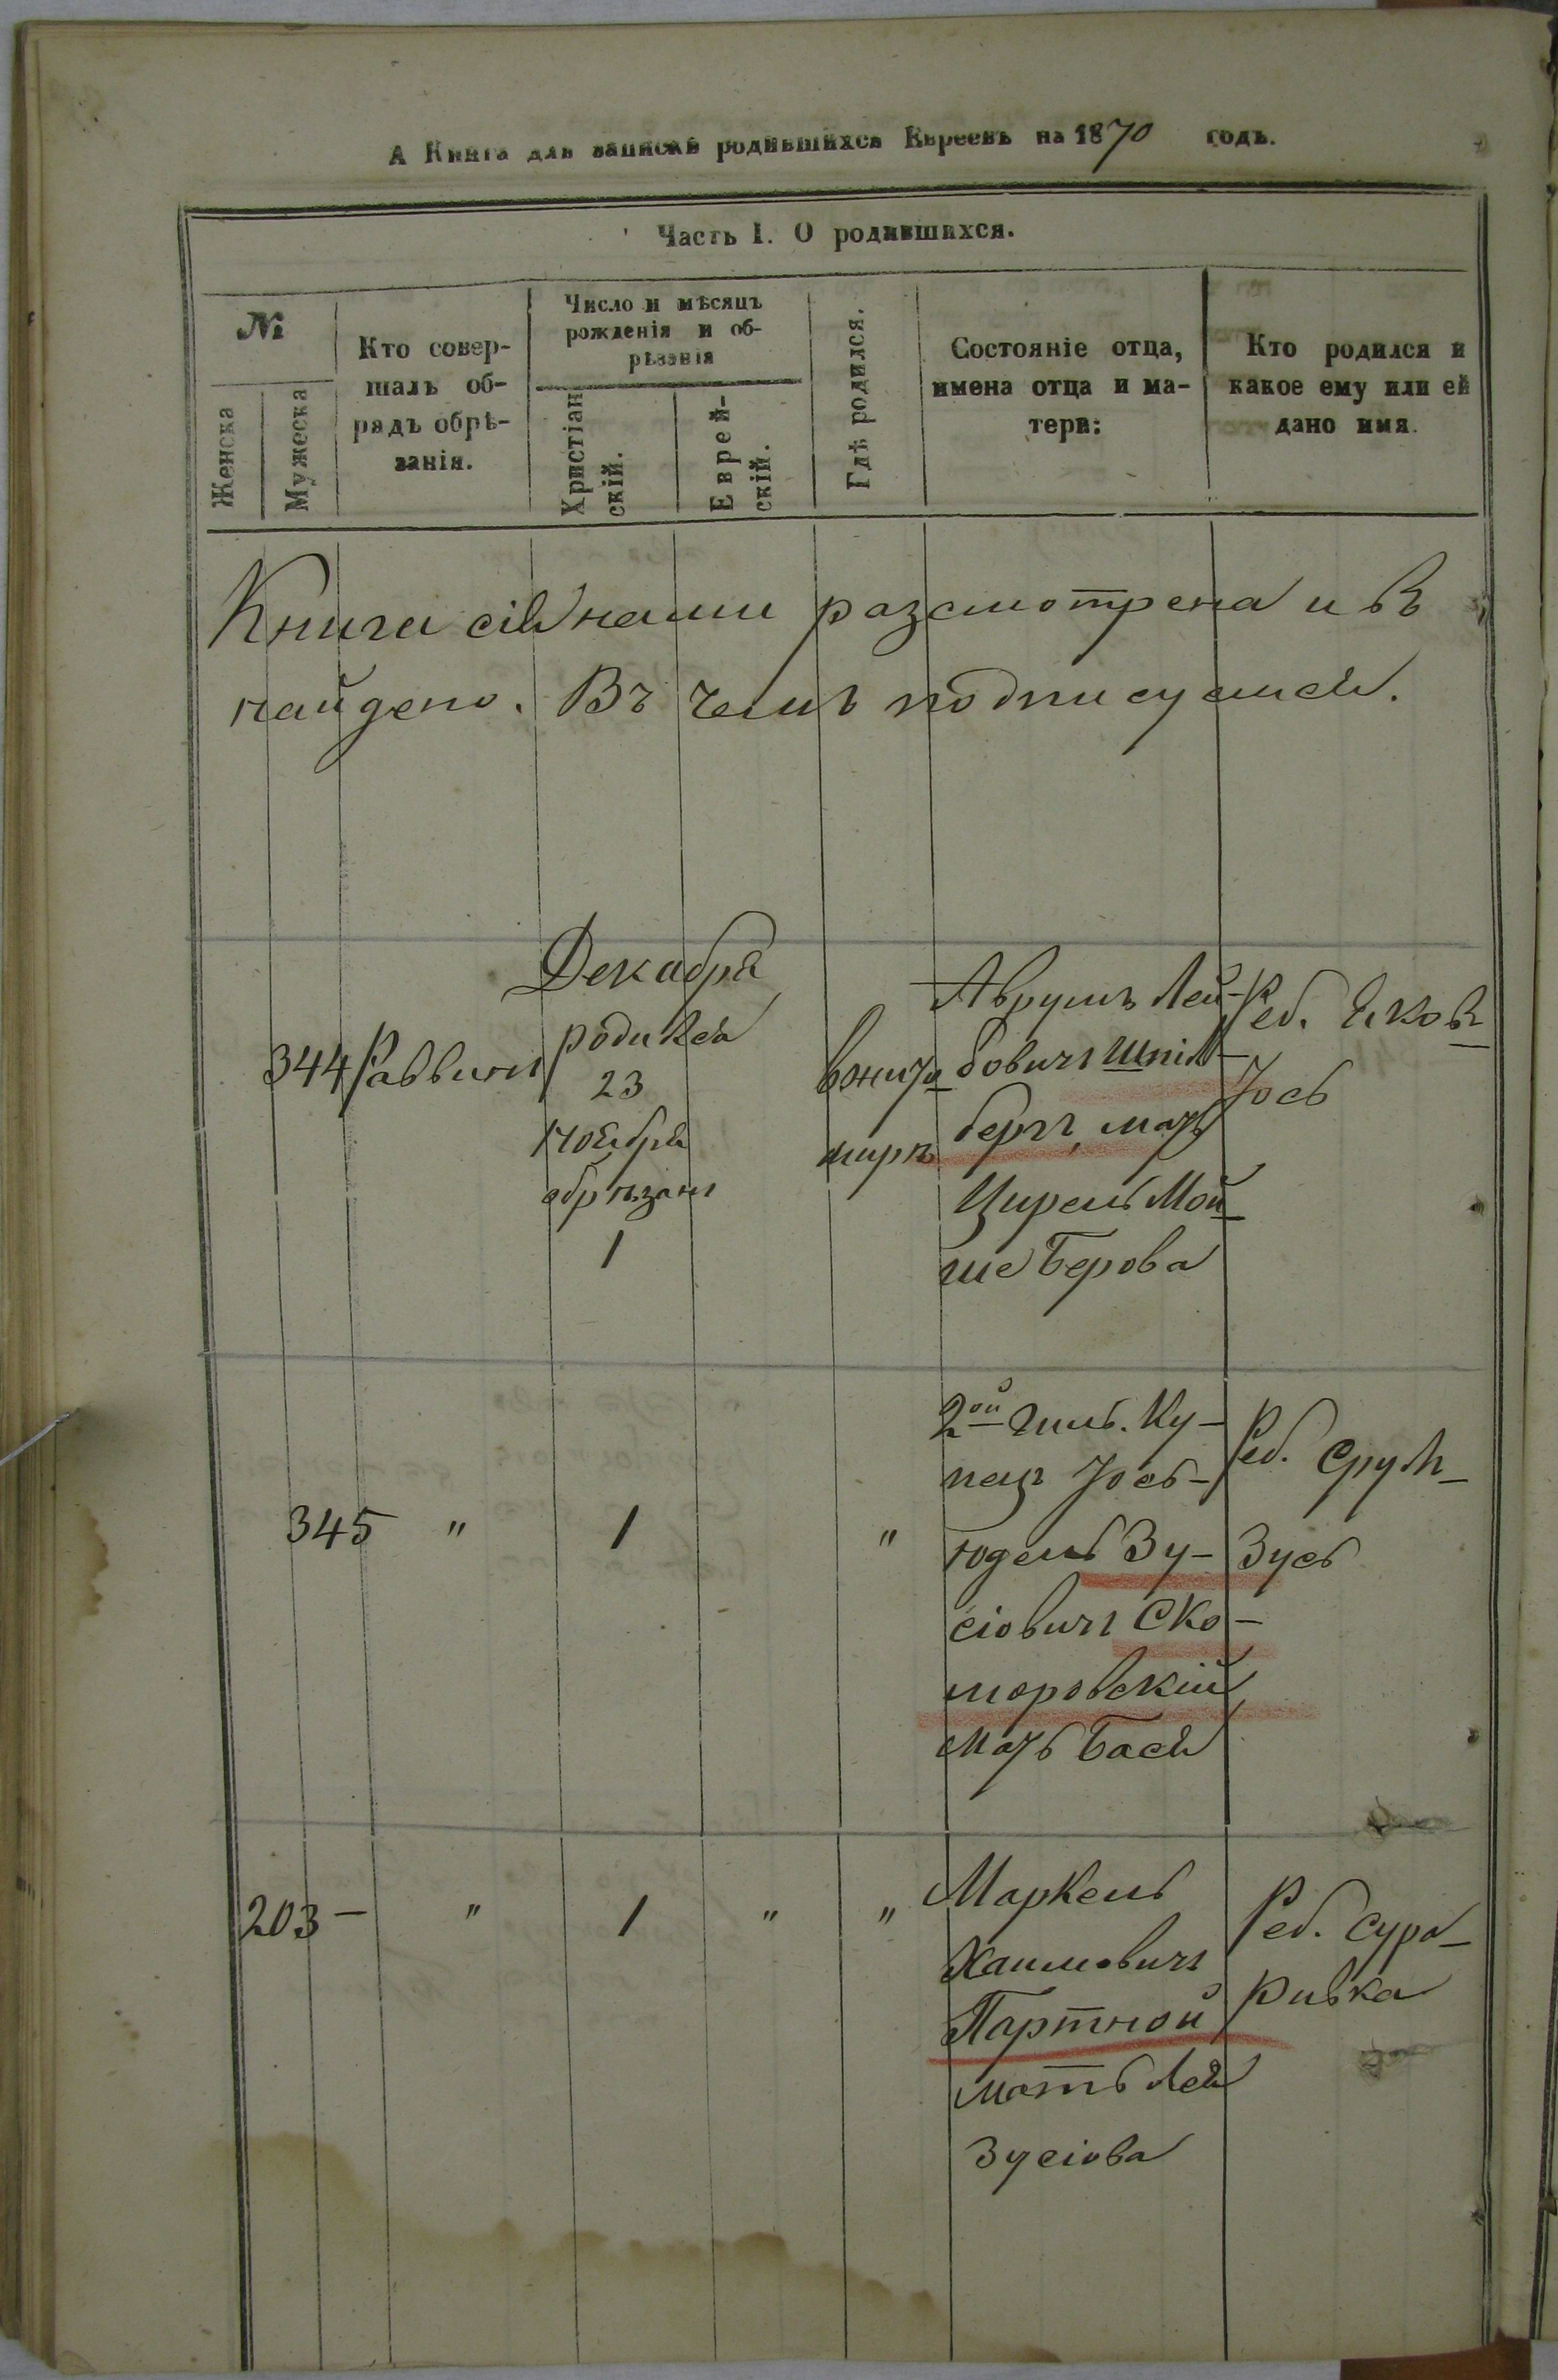 А Книга для записки родившихся Евреевъ на 1870 годъ.
Часть I. О родившихся.
№
Женска
Мужеска
Кто совер-
шалъ об-
рядъ обрѣ-
занія.
Число и мѣсяцъ
рожденія и об-
рѣзанія
Христіан
скій.
Еврей-
скій.
Гдѣ родился.
Состояніе отца,
имена отца и ма-
тери:
Кто родился и
какое ему или ей
дано имя.
Книга сія нами разсмотрена и въ
найдено. Въ чемъ подписуемся.
Декабря
344 Раввинъ
родился
23
Ноября
обрѣзанъ
1
в жито
миръ
Аврумъ Лей-
бовичъ Шпіл-
бергъ, мать
Цирель Мой-
ше Берова
Реб. Яков-
Іось
345 " 1 "
2ой гиль. Ку-
пецъ Іось-
Юдель Зу-
сіовичъ Ско-
моровскій
мать Бася
Реб. Срул-
Зусь
203 – " 1 " "
Маркель
Хаимовичъ
Партной
мать Лея
Зусіова
Реб. Сура-
Ривка